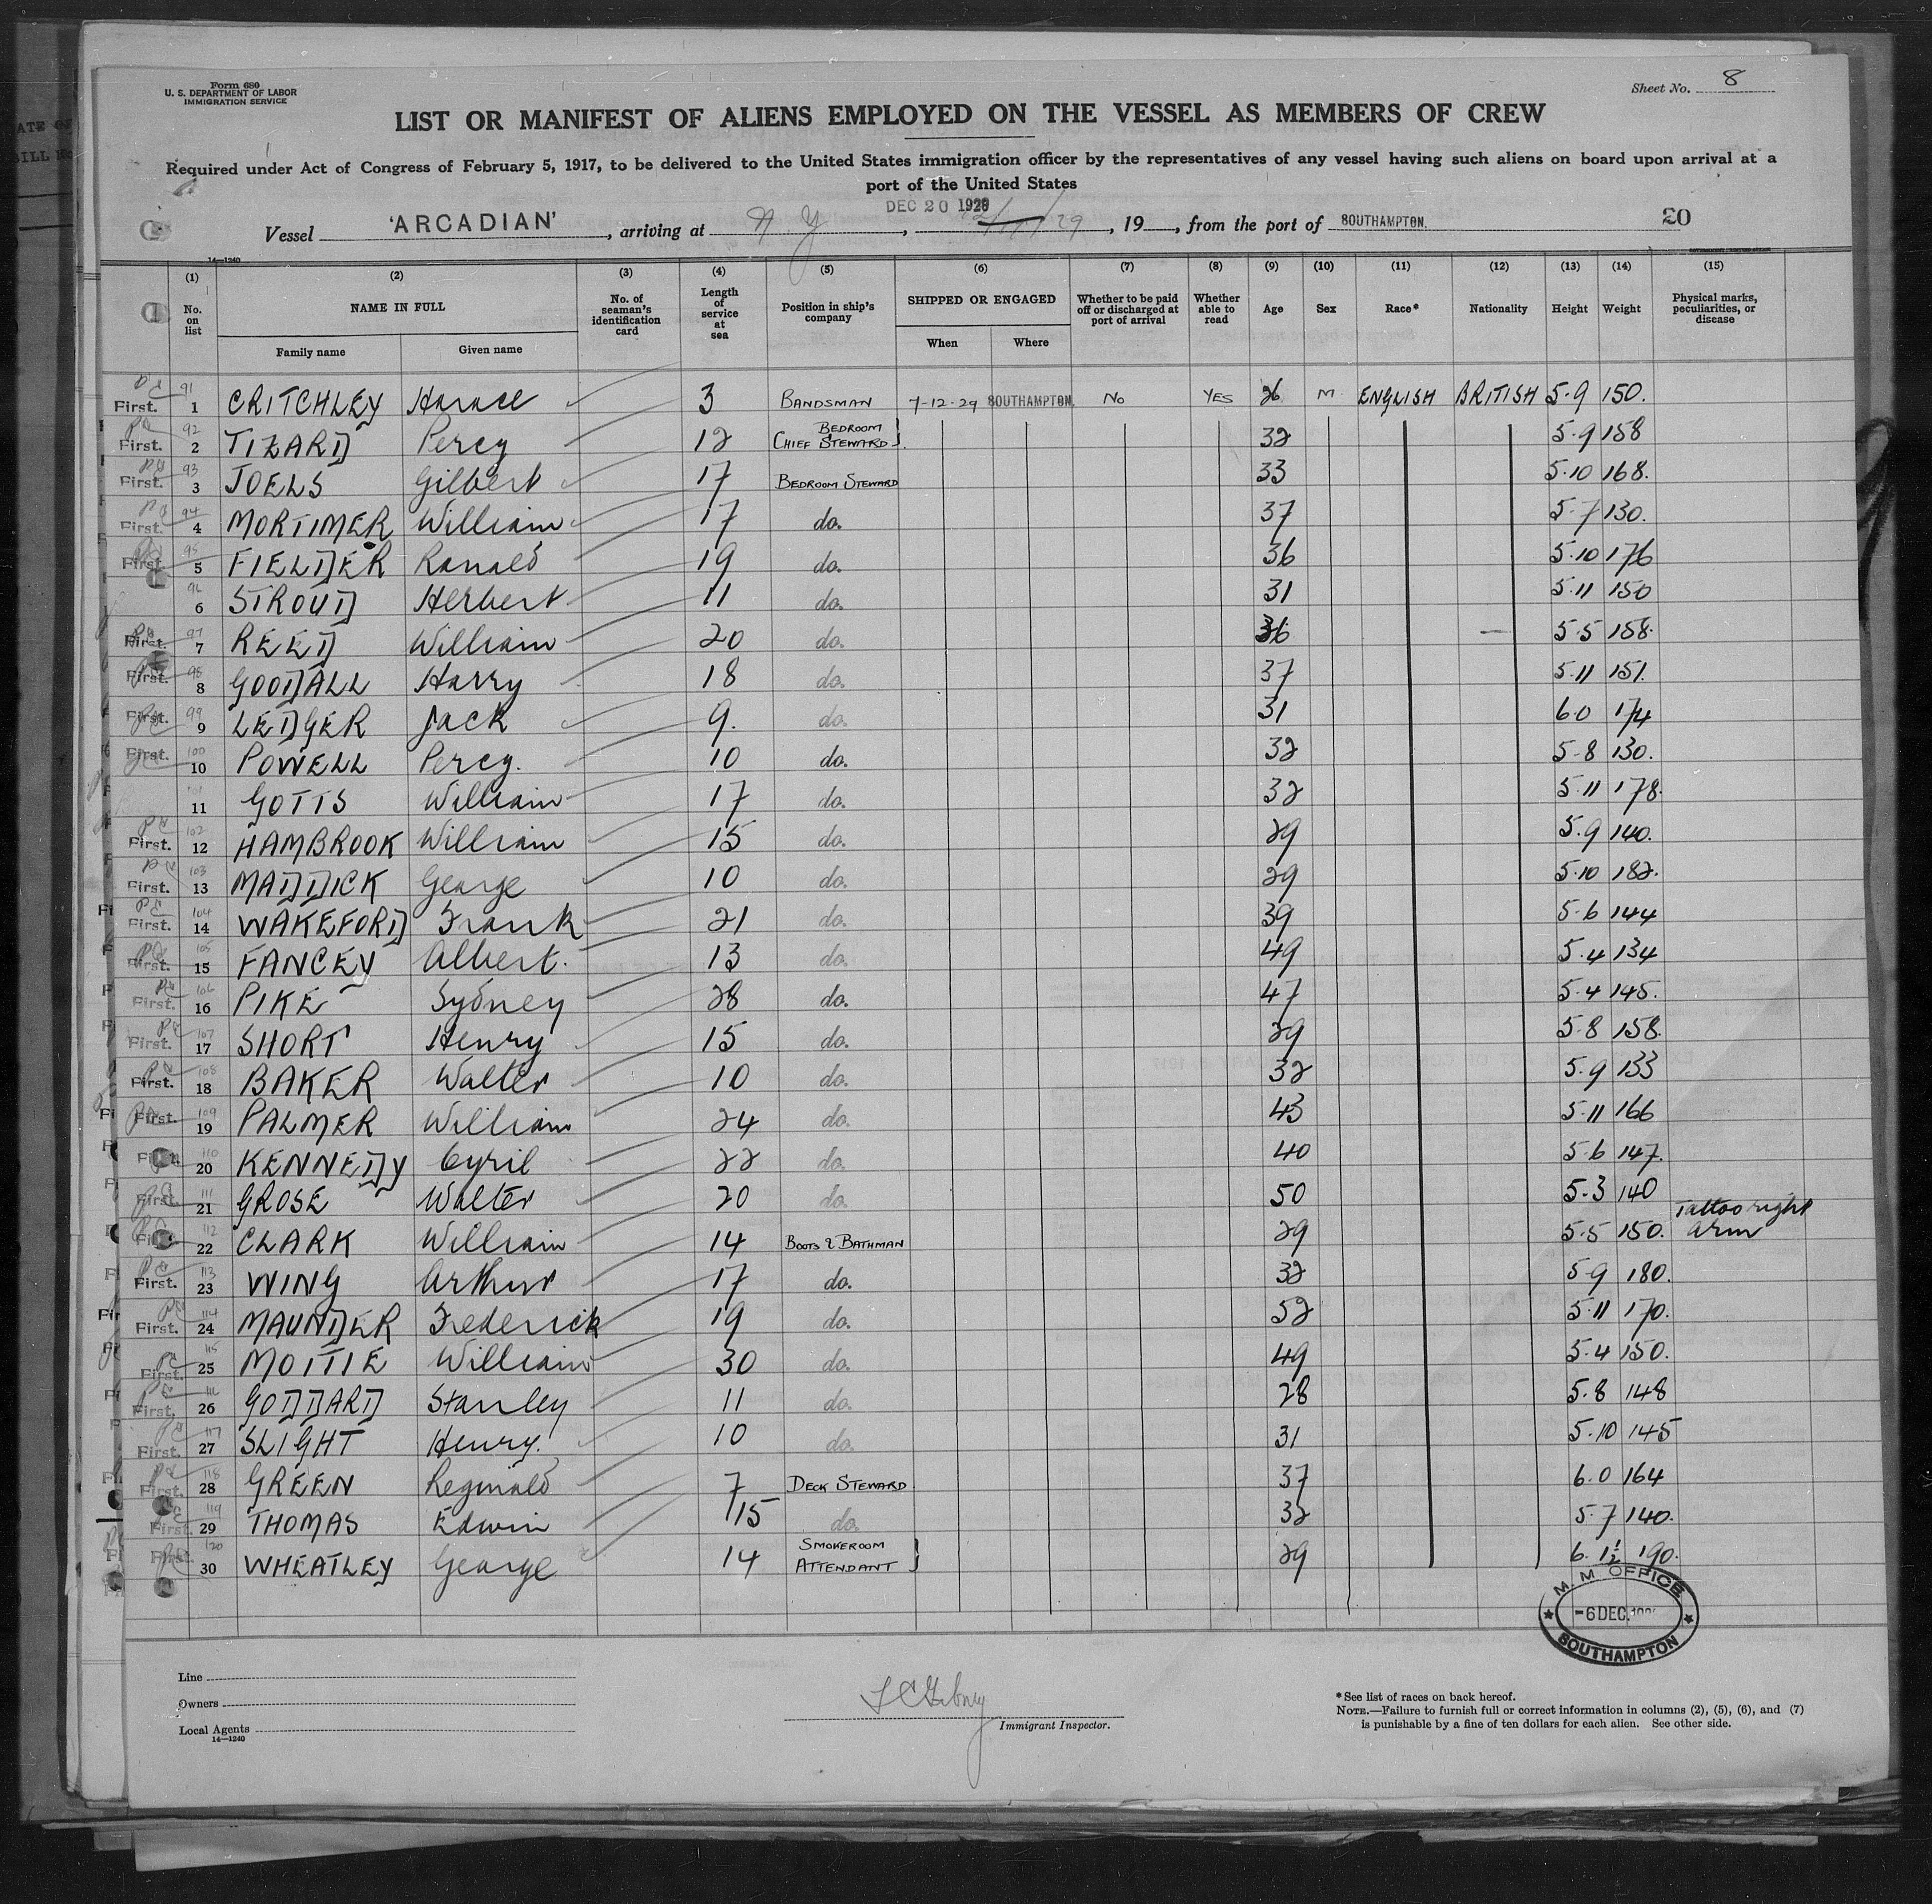 Form 680
U. S. DEPARTMENT OF LABOR
IMMIGRATION SERVICE
Sheet No. 8
LIST OR MANIFEST OF ALIENS EMPLOYED ON THE VESSEL AS MEMBERS OF CREW
Required under Act of Congress of February 5, 1917, to be delivered to the United States immigration officer by the representatives of any vessel having such aliens on board upon arrival at a
port of the United States
DEC 20 1929
Vessel 'ARCADIAN', arriving at N. Y., 19, from the port of SOUTHAMPTON. 20
14—1240
(1) (2) (3) (4) (5) (6) (7) (8) (9) (10) (11) (12) (13) (14) (15)
No. on list NAME IN FULL Family name Given name No. of seaman's identification card Length of service at sea Position in ship's company SHIPPED OR ENGAGED When Where Whether to be paid off or discharged at port of arrival Whether able to read Age Sex Race* Nationality Height Weight Physical marks, peculiarities, or disease
First. 91 1 CRITCHLEY Horace 3 BANDSMAN 7-12-29 SOUTHAMPTON. No YES 26 M. ENGLISH BRITISH 5-9 150.
First. 92 2 TIZARD Percy 12 CHIEF BEDROOM STEWARD 32 5.9 158
First. 93 3 JOELS Gilbert 17 BEDROOM STEWARD 33 5.10 168.
First. 94 4 MORTIMER William 17 do. 37 5.7 130.
First. 95 5 FIELDER Ronald 19 do. 36 5.10 176
96 6 STROUD Herbert 11 do. 31 5.11 150
First. 97 7 REED William 20 do. 36 — 5.5 158.
First. 98 8 GOODALL Harry 18 do. 37 5.11 151.
First. 99 9 LEDGER Jack 9. do. 31 6.0 174
First. 100 10 POWELL Percy. 10 do. 32 5-8 130.
101 11 GOTTS William 17 do. 32 5.11 178.
First. 102 12 HAMBROOK William 15 do. 29 5.9 140.
First. 103 13 MADDICK George 10 do. 29 5.10 182.
First. 104 14 WAKEFORD Frank 21 do. 39 5.6 144
First. 105 15 FANCEY Albert. 13 do. 49 5.4 134
First. 106 16 PIKE Sydney 28 do. 47 5.4 145.
First. 107 17 SHORT Henry 15 do. 29 5.8 158.
First. 108 18 BAKER Walter 10 do. 32 5.9 133
First. 109 19 PALMER William 24 do. 43 5.11 166
First. 110 20 KENNEDY Cyril 22 do. 40 5.6 147.
First. 111 21 GROSE Walter 20 do. 50 5.3 140
First. 112 22 CLARK William 14 BOOTS & BATHMAN 29 5.5 150. Tattoo right arm
First. 113 23 WING Arthur 17 do. 32 5.9 180.
First. 114 24 MAUNDER Frederick 19 do. 52 5.11 170.
First. 115 25 MOTTIE William 30 do. 49 5.4 150.
First. 116 26 GODDARD Stanley 11 do. 28 5.8 148
First. 117 27 SLIGHT Henry. 10 do. 31 5.10 145
First. 118 28 GREEN Reginald 7 DECK STEWARD 37 6.0 164
First. 119 29 THOMAS Edwin 15 do. 32 5.7 140.
First. 120 30 WHEATLEY George 14 SMOKEROOM ATTENDANT 29 6.1½ 190.
M. M. OFFICE
-6 DEC.
SOUTHAMPTON
Line
Owners
Local Agents
14—1240
Immigrant Inspector.
*See list of races on back hereof.
NOTE.—Failure to furnish full or correct information in columns (2), (5), (6), and (7)
is punishable by a fine of ten dollars for each alien. See other side.